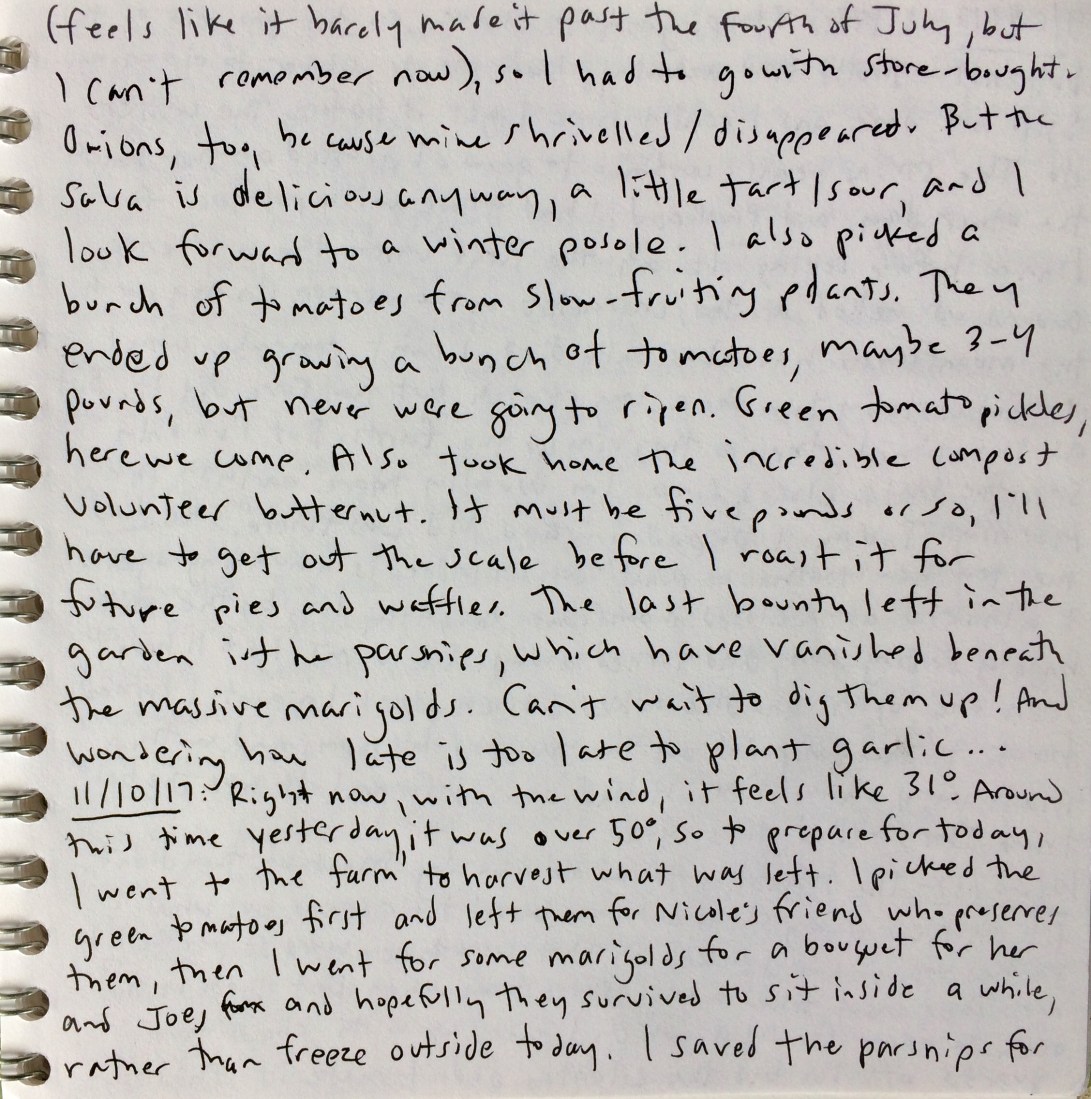 (feels like it barely made it past the Fourth of July, but
I can't remember now), so I had to go with store-bought.
Onions, too, because mine shrivelled/disappeared. But the
salsa is delicious anyway, a little tart/sour, and I
look forward to a winter posole. I also picked a
bunch of tomatoes from slow-fruiting plants. They
ended up growing a bunch of tomatoes, maybe 3-4
pounds, but never were going to ripen. Green tomato pickles,
here we come. Also took home the incredible compost
volunteer butternut. It must be five pounds or so, I'll
have to get out the scale before I roast it for
future pies and waffles. The last bounty left in the
garden is the parsnips, which have vanished beneath
the massive marigolds. Can't wait to dig them up! And
wondering how late is too late to plant garlic...
11/10/17: Right now, with the wind, it feels like 31°. Around
this time yesterday, it was over 50°, so to prepare for today,
I went to the farm to harvest what was left. I picked the
green tomatoes first and left them for Nicole's friend who preserves
them, then I went for some marigolds for a bouquet for her
and Joe, and hopefully they survived to sit inside a while,
rather than freeze outside today. I saved the parsnips for